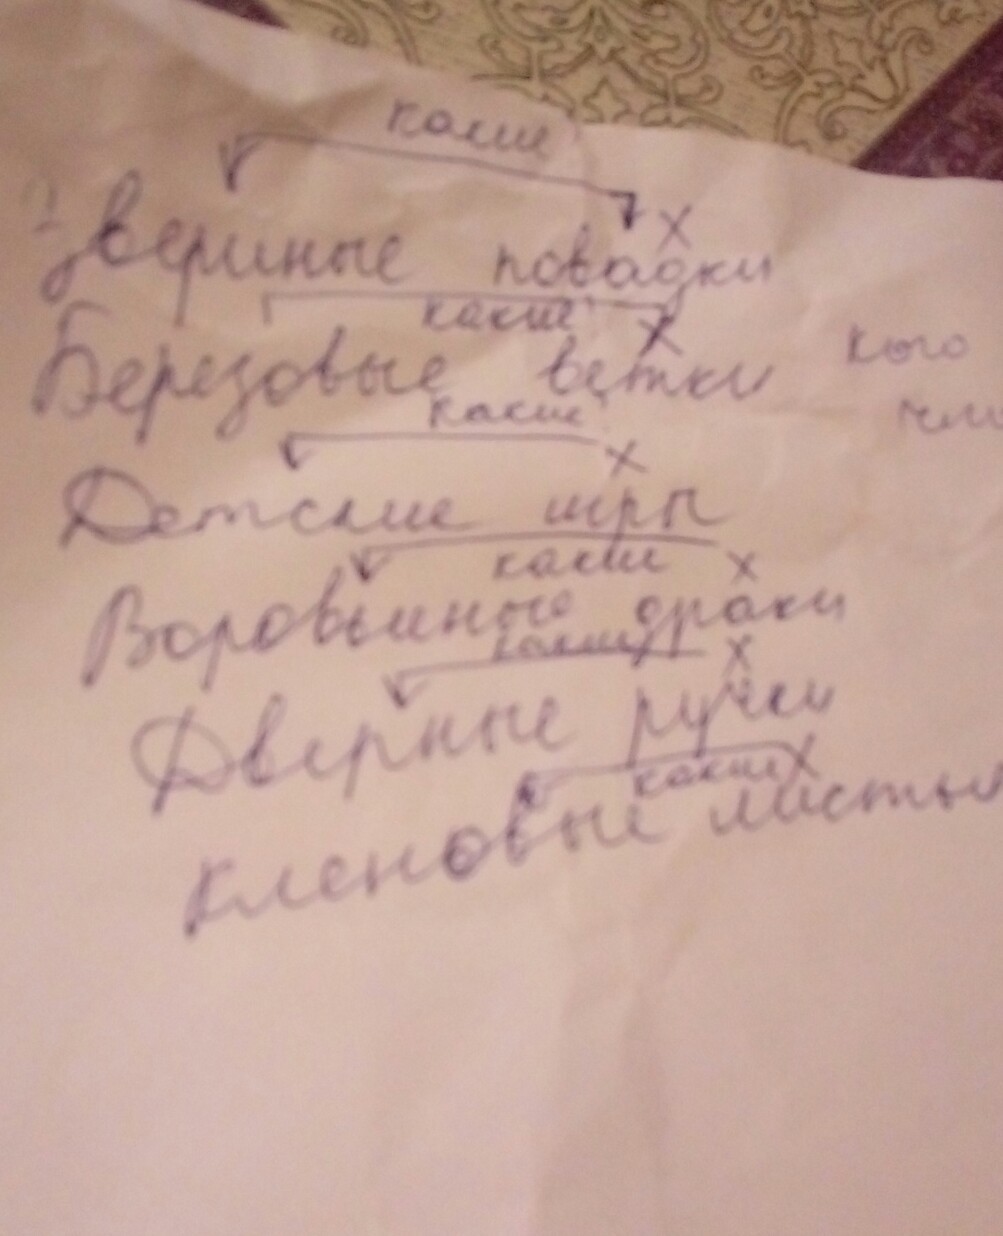 какие
Звериные повадки
какие
Березовые ветки кого
какие
Детские игры
какие
Воровьиные драки
какие
Дверные ручки
какие
Кленовые листья